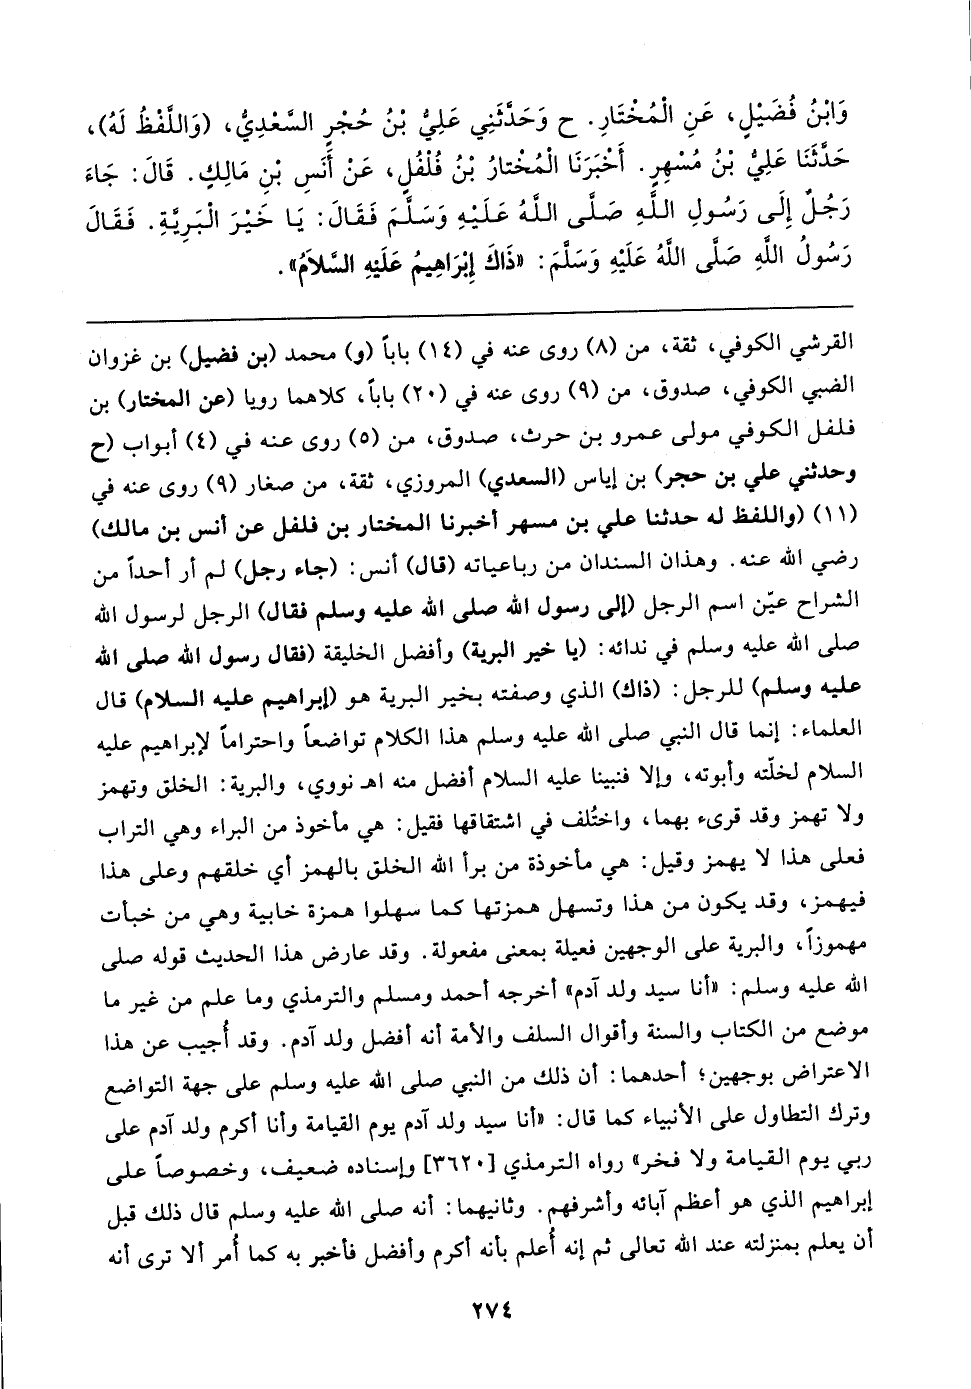 وَابْنُ فُضَيْلٍ، عَنِ الْمُخْتَارِ. ح وَحَدَّثَنِي عَلِيُّ بْنُ حُجْرٍ السَّعْدِيُّ، (وَاللَّفْظُ لَهُ)،
حَدَّثَنَا عَلِيُّ بْنُ مُسْهِرٍ. أَخْبَرَنَا الْمُخْتَارُ بْنُ فُلْفُلٍ، عَنْ أَنَسِ بْنِ مَالِكٍ. قَالَ: جَاءَ
رَجُلٌ إِلَى رَسُولِ اللَّهِ صَلَّى اللَّهُ عَلَيْهِ وَسَلَّمَ فَقَالَ: يَا خَيْرَ الْبَرِيَّةِ. فَقَالَ
رَسُولُ اللَّهِ صَلَّى اللَّهُ عَلَيْهِ وَسَلَّمَ: «ذَاكَ إِبْرَاهِيمُ عَلَيْهِ السَّلاَمُ».
القرشي الكوفي، ثقة، من (٨) روى عنه في (١٤) باباً (و) محمد (بن فضيل) بن غزوان
الضبي الكوفي، صدوق، من (٩) روى عنه في (٢٠) باباً، كلاهما رويا (عن المختار) بن
فلفل الكوفي مولى عمرو بن حرث، صدوق، من (٥) روى عنه في (٤) أبواب (ح
وحدثني علي بن حجر) بن إياس (السعدي) المروزي، ثقة، من صغار (٩) روى عنه في
(١١) (واللفظ له حدثنا علي بن مسهر أخبرنا المختار بن فلفل عن أنس بن مالك)
رضي الله عنه. وهذان السندان من رباعياته (قال) أنس: (جاء رجل) لم أر أحداً من
الشراح عيّن اسم الرجل (إلى رسول الله صلى الله عليه وسلم فقال) الرجل لرسول الله
صلى الله عليه وسلم في ندائه: (يا خير البرية) وأفضل الخليقة (فقال رسول الله صلى الله
عليه وسلم) للرجل: (ذاك) الذي وصفته بخير البرية هو (إبراهيم عليه السلام) قال
العلماء: إنما قال النبي صلى الله عليه وسلم هذا الكلام تواضعاً واحتراماً لإبراهيم عليه
السلام لخلّته وأبوته، وإلا فنبينا عليه السلام أفضل منه اهـ نووي، والبرية: الخلق وتهمز
ولا تهمز وقد قرىء بهما، واختُلف في اشتقاقها فقيل: هي مأخوذ من البراء وهي التراب
فعلى هذا لا يهمز وقيل: هي مأخوذة من برأ الله الخلق بالهمز أي خلقهم وعلى هذا
فيهمز، وقد يكون من هذا وتسهل همزتها كما سهلوا همزة خابية وهي من خبأت
مهموزاً، والبرية على الوجهين فعيلة بمعنى مفعولة. وقد عارض هذا الحديث قوله صلى
الله عليه وسلم: «أنا سيد ولد آدم» أخرجه أحمد ومسلم والترمذي وما علم من غير ما
موضع من الكتاب والسنة وأقوال السلف والأمة أنه أفضل ولد آدم. وقد أُجيب عن هذا
الاعتراض بوجهين؛ أحدهما: أن ذلك من النبي صلى الله عليه وسلم على جهة التواضع
وترك التطاول على الأنبياء كما قال: «أنا سيد ولد آدم يوم القيامة وأنا أكرم ولد آدم على
ربي يوم القيامة ولا فخر» رواه الترمذي [٣٦٢٠] وإسناده ضعيف، وخصوصاً على
إبراهيم الذي هو أعظم آبائه وأشرفهم. وثانيهما: أنه صلى الله عليه وسلم قال ذلك قبل
أن يعلم بمنزلته عند الله تعالى ثم إنه أُعلم بأنه أكرم وأفضل فأخبر به كما أُمر ألا ترى أنه
٢٧٤